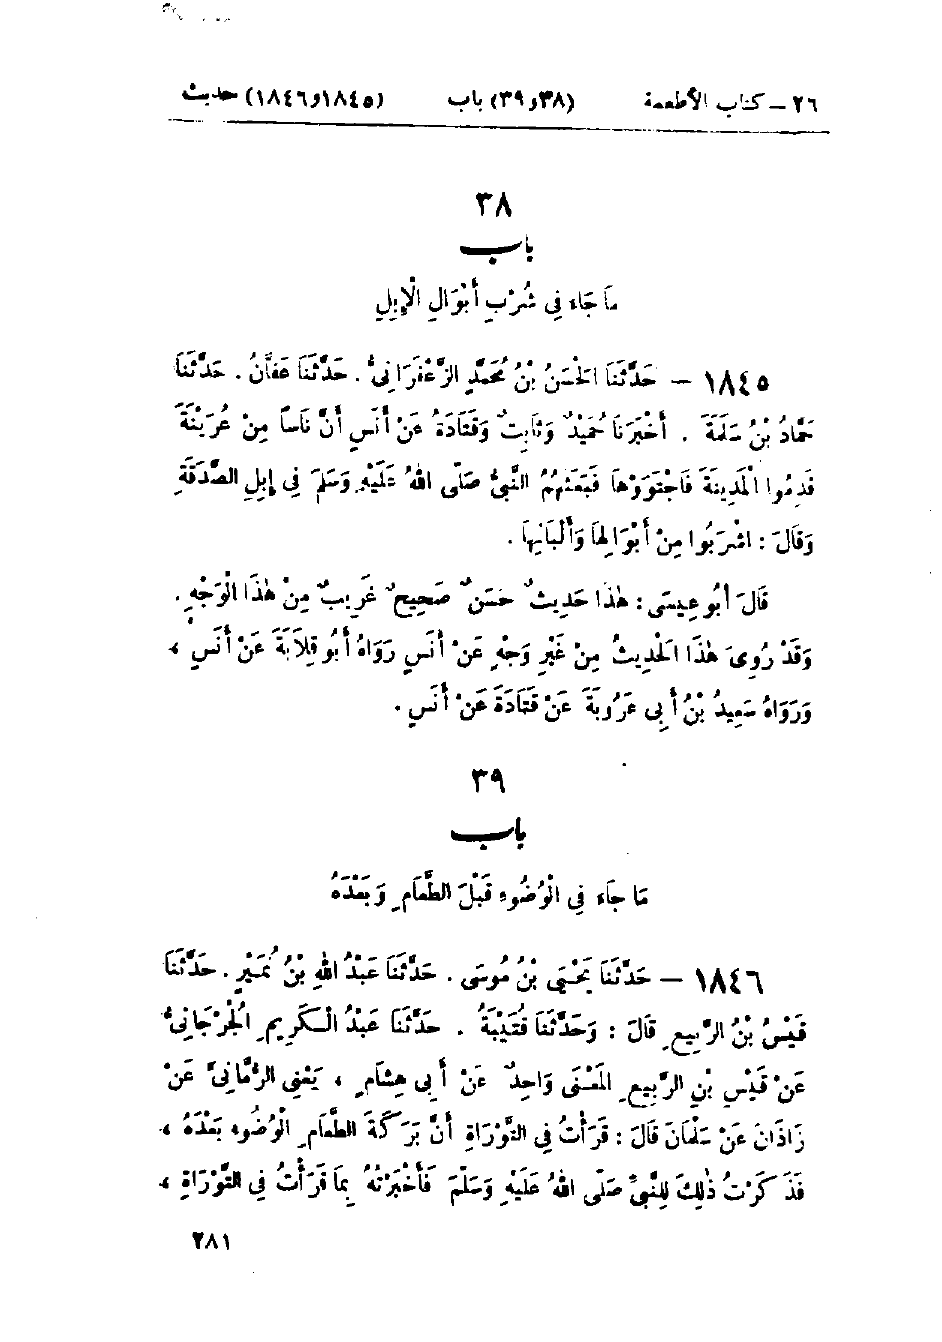 ٢٦ – كتاب الأطعمة (٣٨ و ٣٩) باب (١٨٤٥ و ١٨٤٦) حديث
٣٨
باب
مَا جَاءَ فِي شُرْبِ أَبْوَالِ الْإِبِلِ
١٨٤٥ – حَدَّثَنَا الْحَسَنُ بْنُ مُحَمَّدٍ الزَّعْفَرَانِيُّ . حَدَّثَنَا عَفَّانُ . حَدَّثَنَا
حَمَّادُ بْنُ سَلَمَةَ . أَخْبَرَنَا حُمَيْدٌ وَثَابِتٌ وَقَتَادَةُ عَنْ أَنَسٍ أَنَّ نَاسًا مِنْ عُرَيْنَةَ
قَدِمُوا الْمَدِينَةَ فَاجْتَوَوْهَا فَبَعَثَهُمُ النَّبِيُّ صَلَّى اللهُ عَلَيْهِ وَسَلَّمَ فِي إِبِلِ الصَّدَقَةِ
وَقَالَ : اشْرَبُوا مِنْ أَبْوَالِهَا وَأَلْبَانِهَا .
قَالَ أَبُو عِيسَى : هٰذَا حَدِيثٌ حَسَنٌ صَحِيحٌ غَرِيبٌ مِنْ هٰذَا الْوَجْهِ .
وَقَدْ رُوِيَ هٰذَا الْحَدِيثُ مِنْ غَيْرِ وَجْهٍ عَنْ أَنَسٍ رَوَاهُ أَبُو قِلَابَةَ عَنْ أَنَسٍ ،
وَرَوَاهُ سَعِيدُ بْنُ أَبِي عَرُوبَةَ عَنْ قَتَادَةَ عَنْ أَنَسٍ .
٣٩
باب
مَا جَاءَ فِي الْوُضُوءِ قَبْلَ الطَّعَامِ وَبَعْدَهُ
١٨٤٦ – حَدَّثَنَا يَحْيَى بْنُ مُوسَى . حَدَّثَنَا عَبْدُ اللهِ بْنُ نُمَيْرٍ . حَدَّثَنَا
قَيْسُ بْنُ الرَّبِيعِ قَالَ : وَحَدَّثَنَا قُتَيْبَةُ . حَدَّثَنَا عَبْدُ الْكَرِيمِ الْجُرْجَانِيُّ
عَنْ قَيْسِ بْنِ الرَّبِيعِ الْمَعْنَى وَاحِدٌ عَنْ أَبِي هِشَامٍ ، يَعْنِي الرُّمَّانِيَّ عَنْ
زَاذَانَ عَنْ سَلْمَانَ قَالَ : قَرَأْتُ فِي التَّوْرَاةِ أَنَّ بَرَكَةَ الطَّعَامِ الْوُضُوءُ بَعْدَهُ ،
فَذَكَرْتُ ذٰلِكَ لِلنَّبِيِّ صَلَّى اللهُ عَلَيْهِ وَسَلَّمَ فَأَخْبَرْتُهُ بِمَا قَرَأْتُ فِي التَّوْرَاةِ ،
٢٨١